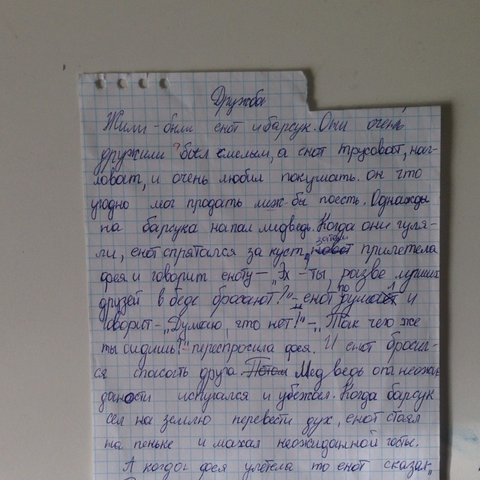 Дружба
Жили-были енот и барсук. Они очень
дружили был смелым, а енот трусоват, наг-
ловат, и очень любил покушать. он что
угодно мог продать лиж-бы поесть. Однажды
на барсука напал медведь. Когда они гуля-
ли, енот спрятался за куст, затем прилетела
фея и говорит еноту-„Эх-ты, разве лучших
друзей в беде бросают?"-енот подумал и
говорит-„Думаю, что нет!"-„Так чего же
ты сидишь!"-переспросила фея. И енот бросил-
ся спасать друга. Медведь от неожи
даности испугался и убежал. Когда барсук
сел на землю перевести дух, енот стоял
на пеньке и махал неожиданной гостье.
А когда фея улетела то енот сказал„